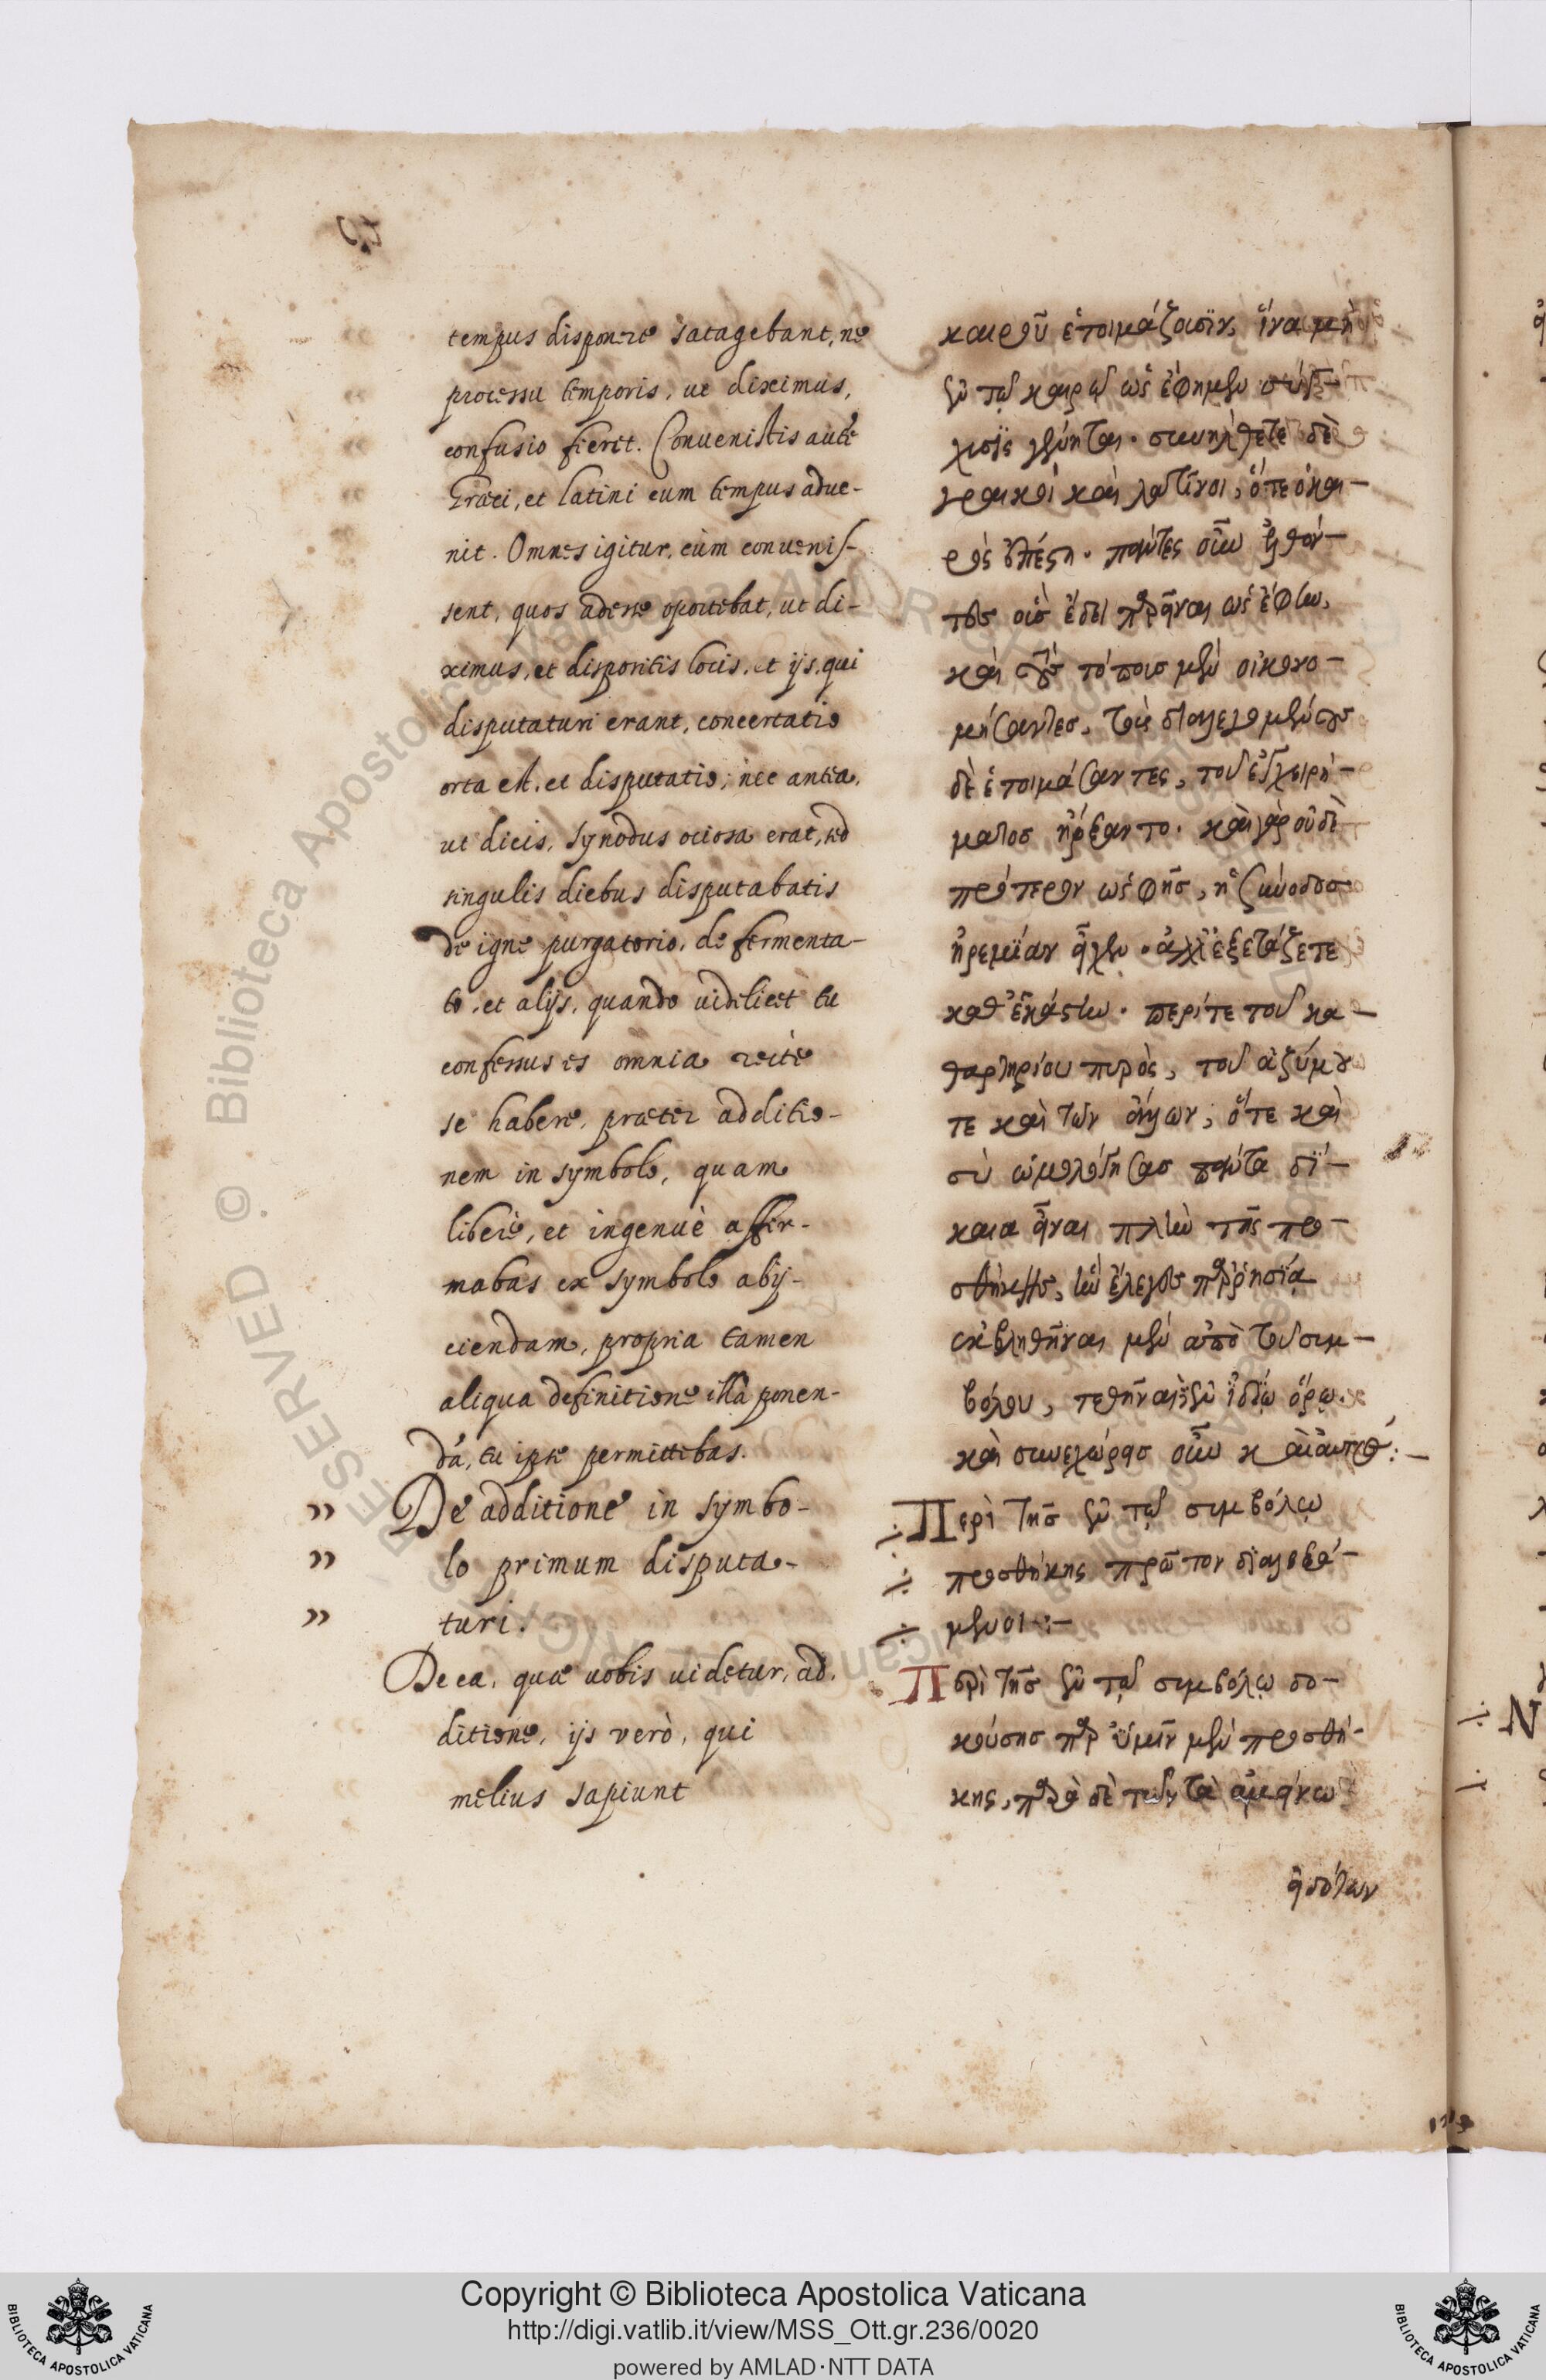 tempus disponere satagebant, ne
processu temporis, ut diximus,
confusio fieret. Convenistis autē
Græci, et latini cum tempus adve-
nit. Omnes igitur, cùm convenis-
sent, quos adesse oportebat, ut di-
ximus, et dispositis locis, et ijs, qui
disputaturi erant, concertatio
orta est, et disputatio; nec antea,
ut dicis, synodus ociosa erat, sed
singulis diebus disputabatis
de igne purgatorio, de fermenta-
to, et alijs, quando videlicet tu
confessus es omnia rectè
se habere, præter additio-
nem in symbolo, quam
liberè, et ingenuè affir-
mabas ex symbolo abij-
ciendam, propria tamen
aliqua definitione illā ponen-
dā, tu ipse permittebas.
" De additione in symbo-
" lo primum disputa-
" turi.
De ea, quæ vobis videtur, ad-
ditione, ijs verò, qui
melius sapiunt
καιροῦ ἑτοιμάζωσϊν, ἵνα μὴ
ἐν τῷ καιρῷ ὡς ἔφημεν σύγ-
χισϊς γένηται. συνήλθετε δὲ
γραικοὶ καὶ λατῖνοι, ὅτε ὁ και-
ρὸς ἐπέστη. πάντες οὖν ἐλθόν-
τες οὓς ἔδει παρεῖναι ὡς ἔφην,
καὶ τοὺς τόπους μὲν οἰκονο-
μήσαντες, τοὺς διαλεγομένους
δὲ ἑτοιμάσαντες, τοῦ ἐγχειρή-
ματος ἤρξαντο. καὶ γὰρ οὐδὲ
πρότερον ὡς φῂς, ἡ σύνοδος
ἠρεμίαν εἶχεν. ἀλλ' ἐξετάζετε
καθ' ἑκάστην. περί τε τοῦ κα-
θαρτηρίου πυρὸς, τοῦ ἀζύμου
τε καὶ τῶν ἄλλων, ὅτε καὶ
σὺ ὡμολόγησας πάντα δί-
καια εἶναι πλὴν τῆς προ-
σθήκης, ἣν ἔλεγες παρρησίᾳ
ἐκβληθῆναι μὲν ἀπὸ τοῦ συμ-
βόλου, τεθῆναι ἐν ἰδίῳ ὅρῳ.
Περὶ τῆς ἐν τῷ συμβόλῳ
προσθήκης πρῶτον διαλεξό-
μενοι:-
Περὶ τῆς ἐν τῷ συμβόλῳ δο-
κούσης παρ' ὑμῖν μὲν προσθή-
κης, παρὰ δὲ τῶν τὰ ἀμείνω
εἰδότων
© Biblioteca Apostolica Vaticana
Copyright © Biblioteca Apostolica Vaticana
http://digi.vatlib.it/view/MSS_Ott.gr.236/0020
powered by AMLAD·NTT DATA
BIBLIOTECA APOSTOLICA VATICANA
BIBLIOTECA APOSTOLICA VATICANA